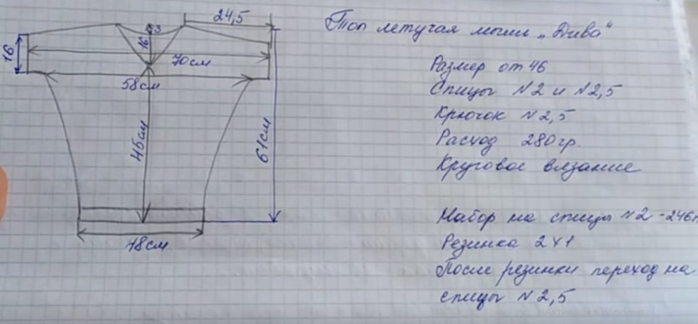 24,5
Топ летучая мышь „Дива"
16
16
23
70см
58см
Размер от 46
Спицы №2 и №2,5
Крючок №2,5
45см
61см
Расход 280гр.
Круговое вязание
Набор на спицы №2 - 246п
Резинка 2х1
48см
После резинки переход на
спицы №2,5